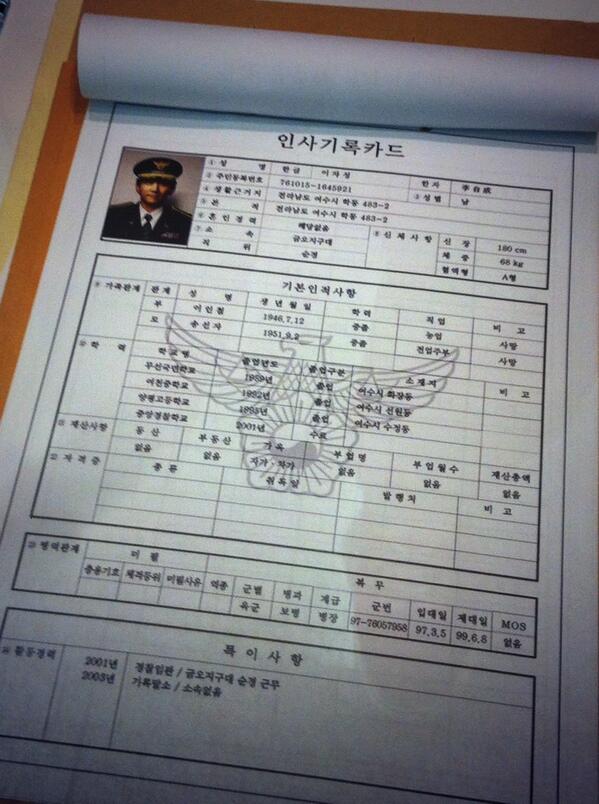 인사기록카드
① 성 명 한글 이자성 한자 李自成
② 주민등록번호 761015-1645921 ③ 성별 남
④ 생활근거지 전라남도 여수시 학동 483-2
⑤ 본 적 전라남도 여수시 학동 483-2
⑥ 혼인경력 해당없음 ⑧ 신체사항 신 장 180 cm
⑦ 소 속 금오지구대 체 중 68 kg
직 위 순경 혈액형 A형
기본인적사항
⑨ 가족관계 관계 성 명 생년월일 학력 직업 비 고
부 1946.7.12 중졸 농업 사망
모 1951.9.2 중졸 전업주부 사망
학교명 졸업년도 졸업구분 소재지 비 고
1989년 졸업 여수시 화장동
1992년 졸업 여수시 선원동
1995년 졸업 여수시 수정동
중앙경찰학교 2001년 수료
재산사항 동 산 부동산 가 옥 부업명 부업월수 재산총액
없음 없음 자가·차가 없음 없음 없음
종 류 취득일 발행처 비 고
복 무
군별 계급 군번 입대일 제대일 MOS
육군 병장 97-76057958 97.3.5 99.6.8 없음
특이사항
2001년 경찰입관 / 금오지구대 순경 근무
2003년 기록말소 / 소속없음